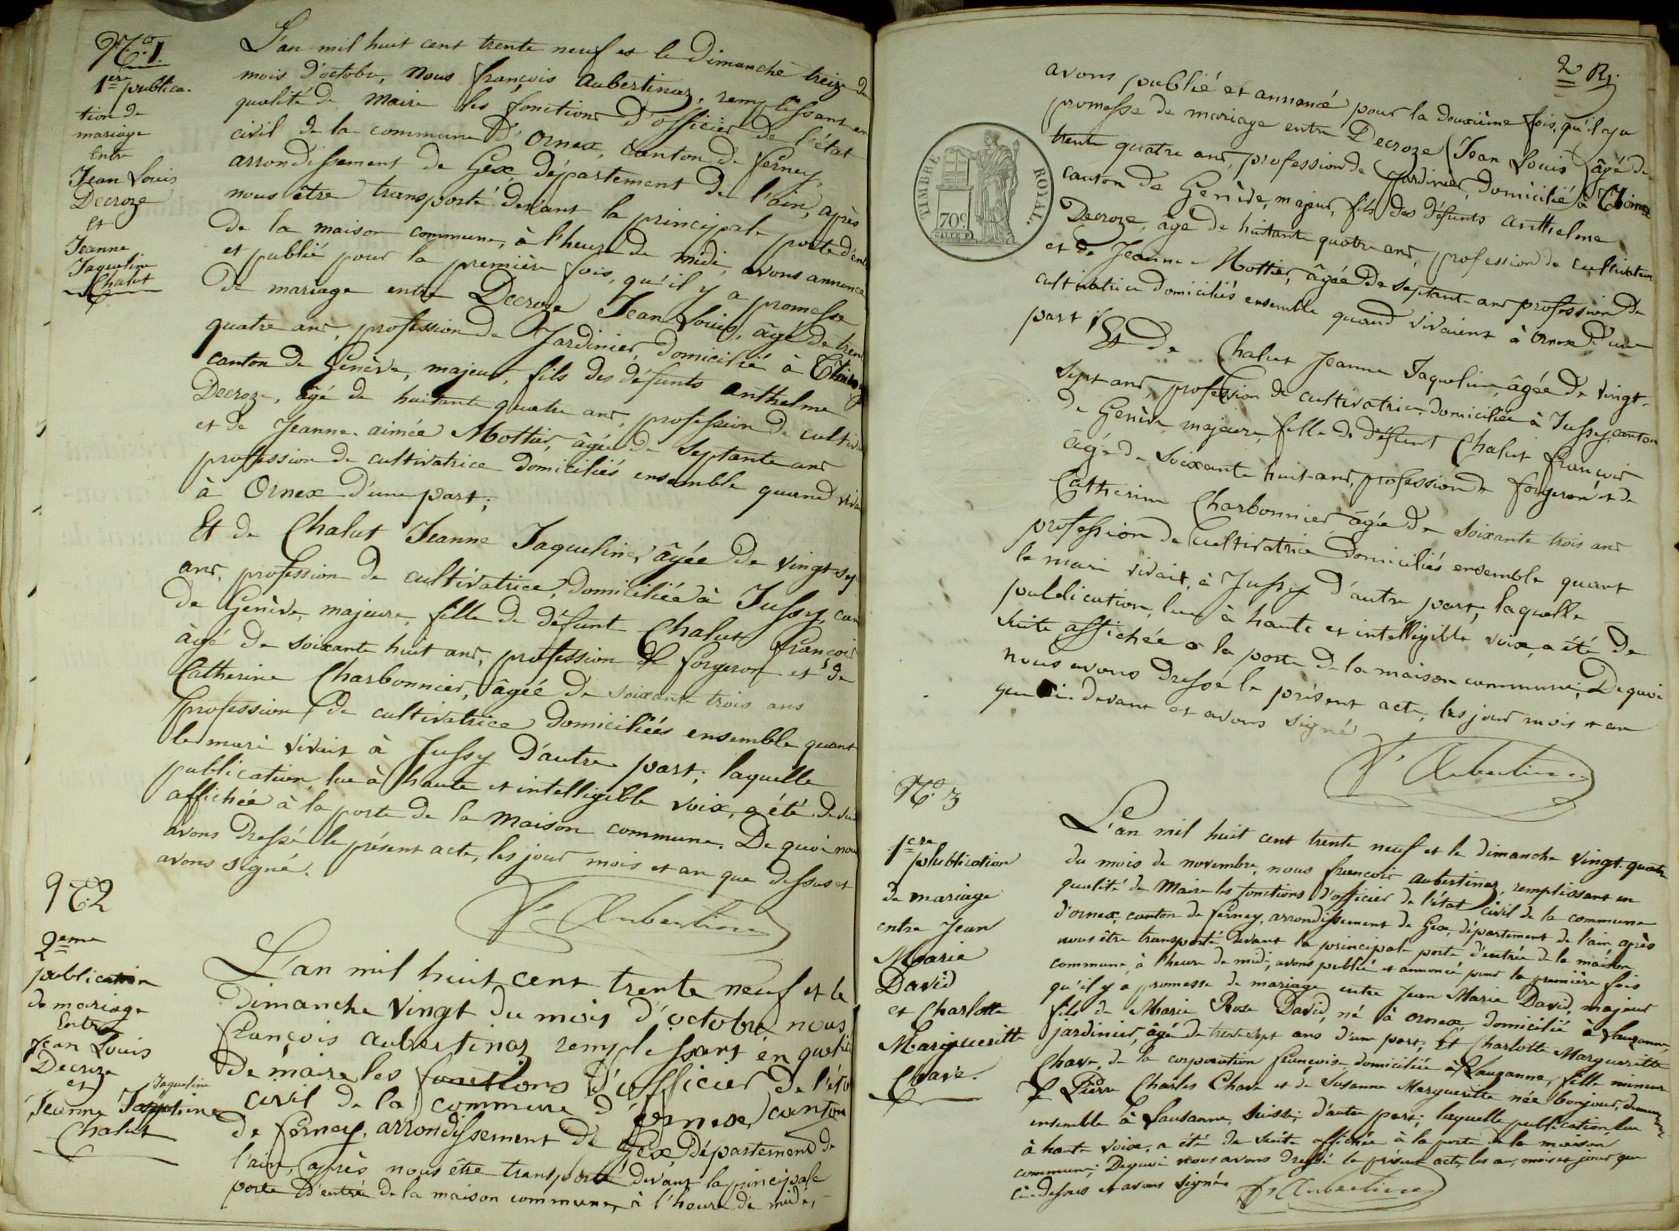 N.° 1.
1ère publica-
tion de
mariage
Entre
Jean Louis
Decroze
Et
Jeanne
Jaqueline
Chalut
L'an mil huit cent trente neuf et le Dimanche treize du
mois d'octobre, Nous françois Aubertinaz, remplissant en
qualité de Maire les fonctions d'officier de l'état
civil de la commune d'Ornex, Canton de ferney,
arrondissement de Gex département de l'ain, après
nous être transporté devant la principale porte d'ent
de la maison commune, à l'heure de midi, avons annoncé
et publié pour la première fois, qu'il y a promesse
de mariage entre Decroze Jean Louis, âgé de tren
quatre ans, profession de Jardinier, domicilié à
canton de Genève, majeur, fils des défunts Anthelme
Decroze, âgé de huitante quatre ans, profession de cultiva
et de Jeanne aimée Mottier, âgée de septante ans
profession de cultivatrice domiciliés ensemble quand viva
à Ornex d'une part;
Et de Chalut Jeanne Jaqueline, âgée de vingt sep
ans, profession de cultivatrice, domiciliée à Jussy, can
de Genève, majeure, fille de défunt Chalut françois
âgé de soixante huit ans, profession de forgeron et de
Catherine Charbonnier, âgée de soixante trois ans
profession de cultivatrice domiciliés ensemble quant
le mari vivait à Jussy d'autre part; laquelle
publication lue à haute et intelligible voix, a été de sui
affichée à la porte de la Maison commune, De quoi nous
avons Dressé le présent acte, les jour mois et an que dessus et
avons signé.
f.s Aubertinaz
N.° 2
2eme
publication
de mariage
Entre
Jean Louis
Decroze
et
Jaqueline
Jeanne Jaqueline
Chalut
L'an mil huit cent trente neuf et le
dimanche vingt du mois d'octobre nous,
françois aubertinaz remplissant en qualité
de maire les fonctions d'officier de l'éta
civil de la commune d'Ornex, canton
de ferney, arrondissement de Gex, département de
l'ain, après nous être transporté devant la principale
porte d'entrée de la maison commune, à l'heure de midi,
2
avons publié et annoncé pour la douxième fois, qu'il y a
promesse de mariage entre Decroze (Jean Louis) âgé de
trente quatre ans, profession de Jardinier, domicilié à
canton de Genève, majeur, fils des défunts anthelme
Decroze, âgé de huitante quatre ans, profession de cultivateur
et de Jeanne Mottier, âgée de septante ans profession de
cultivatrice domiciliés ensemble quand vivaient à Ornex d'une
part;
Et de Chalut Jeanne Jaqueline âgée de vingt-
sept ans, profession de cultivatrice, domiciliée à Jussy canton
de Genève majeure, fille de défunt Chalut françois
âgé de soixante huit ans, profession de forgeron et de
Catherine Charbonnier âgée de soixante trois ans
profession de cultivatrice domiciliés ensemble quant
le mari vivait, à Jussy d'autre part, laquelle
publication, lue à haute et intelligible voix, a été de
suite affichée a la porte de la maison commune, De quoi
nous avons dressé le présent acte, les jour mois et an
que ci-devant et avons signé
f.s Aubertinaz
TIMBRE ROYAL.
70c
N.° 3
1ère
publication
de mariage
entre Jean
Marie
David
et Charlotte
Margueritte
Chave.
L'an mil huit cent trente neuf et le dimanche vingt quatre
du mois de novembre, nous francois aubertinaz, remplissant en
qualité de Maire les fonctions d'officier de l'état civil de la commune
d'ornex, canton de ferney, arrondissement de Gex, département de l'ain, après
nous être transporté devant la principale porte d'entrée de la maison
commune, à l'heure de midi, avons publié et annoncé pour la première fois
qu'il y a promesse de mariage entre Jean Marie David, majeur
fils de Marie Rose David, né à ornex domicilié à Lauzanne,
jardinier, âgé de trente sept ans d'une part; Et Charlotte Margueritte
Chave, de la corporation françoise, domiciliée à Lauzanne, fille mineure
de Pierre Charles Chave et de Susanne Margueritte née bonjour, demeurant
ensemble à Lausanne, Suisse; d'autre part; laquelle publication, lue
à haute voix, a été de suite affichée à la porte de la maison
commune; De quoi nous avons dressé le présent acte, les an, mois et jour que
ci-dessus et avons signé
f.s Aubertinaz